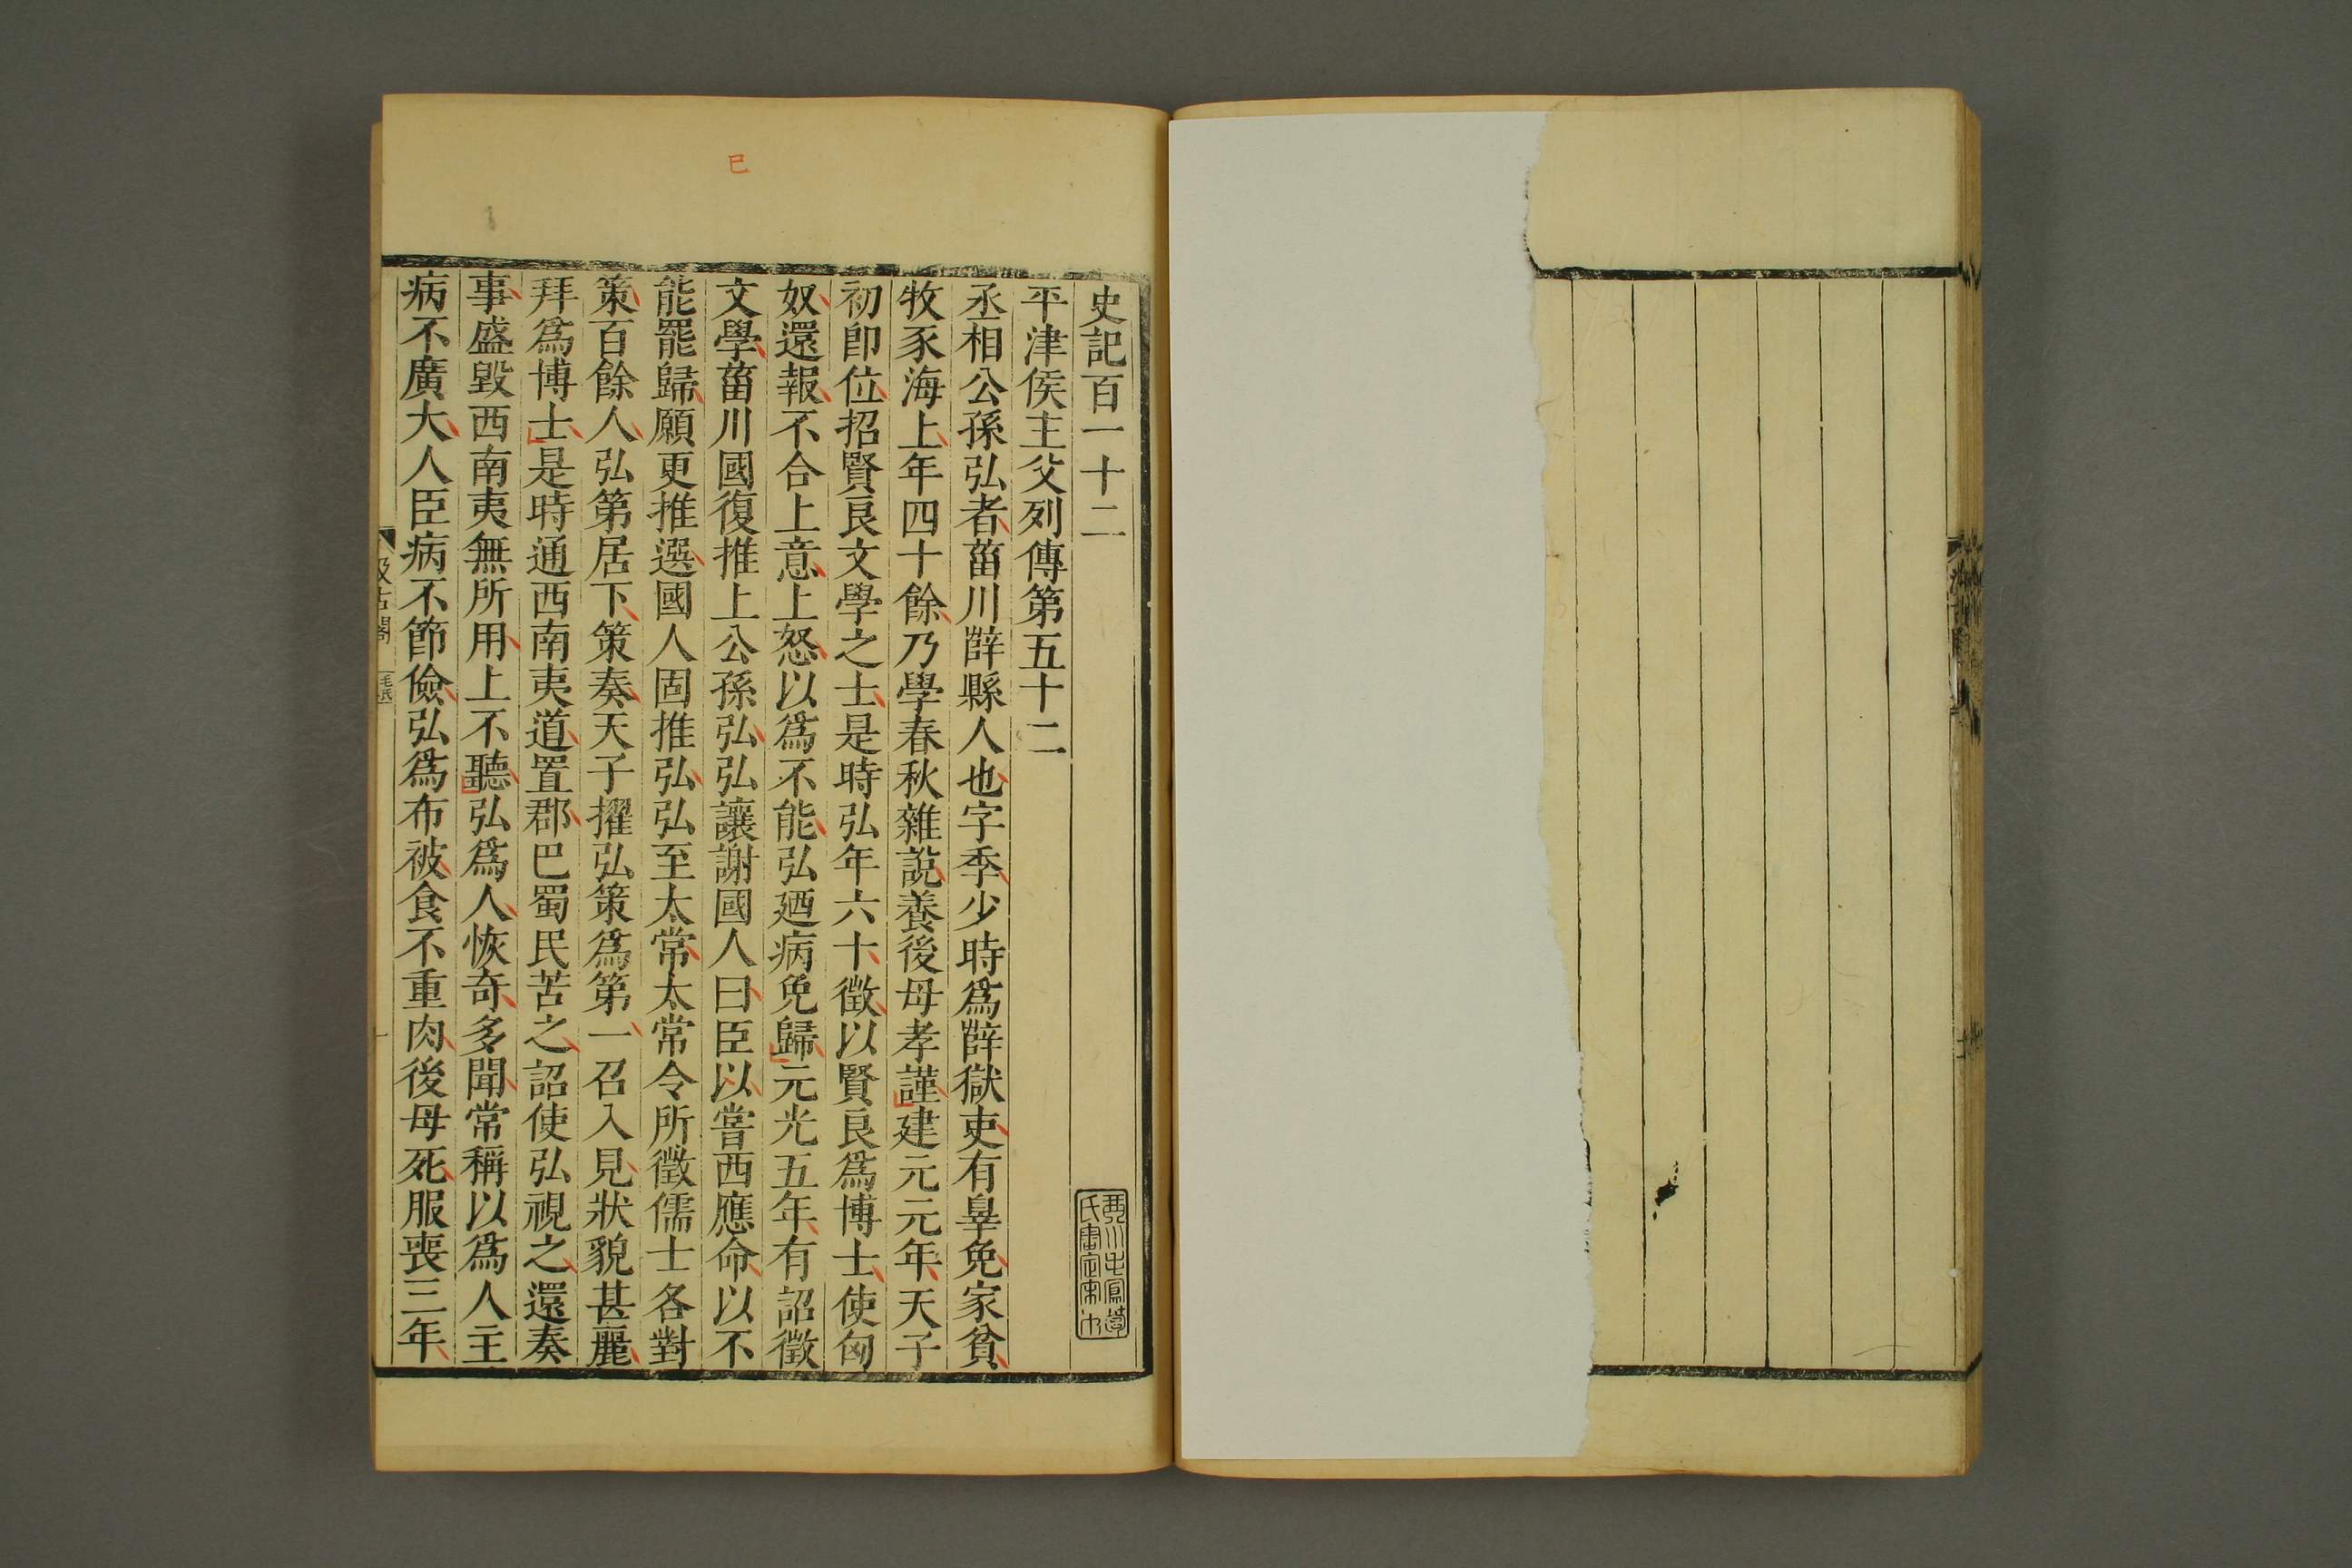 史記百一十二
平津侯主父列傳第五十二
丞相公孫弘者菑川薛縣人也字季少時爲薛獄吏有辠免家貧
牧豕海上年四十餘乃學春秋雜說養後母孝謹建元元年天子
初卽位招賢良文學之士是時弘年六十徵以賢良爲博士使匈
奴還報不合上意上怒以爲不能弘廼病免歸元光五年有詔徵
文學菑川國復推上公孫弘弘讓謝國人曰臣以嘗西應命以不
能罷歸願更推選國人固推弘弘至太常太常令所徵儒士各對
策百餘人弘第居下策奏天子擢弘策爲第一召入見狀貌甚麗
拜爲博士是時通西南夷道置郡巴蜀民苦之詔使弘視之還奏
事盛毀西南夷無所用上不聽弘爲人恢奇多聞常稱以爲人主
病不廣大人臣病不節儉弘爲布被食不重肉後母死服喪三年
汲古閣
毛氏
巳